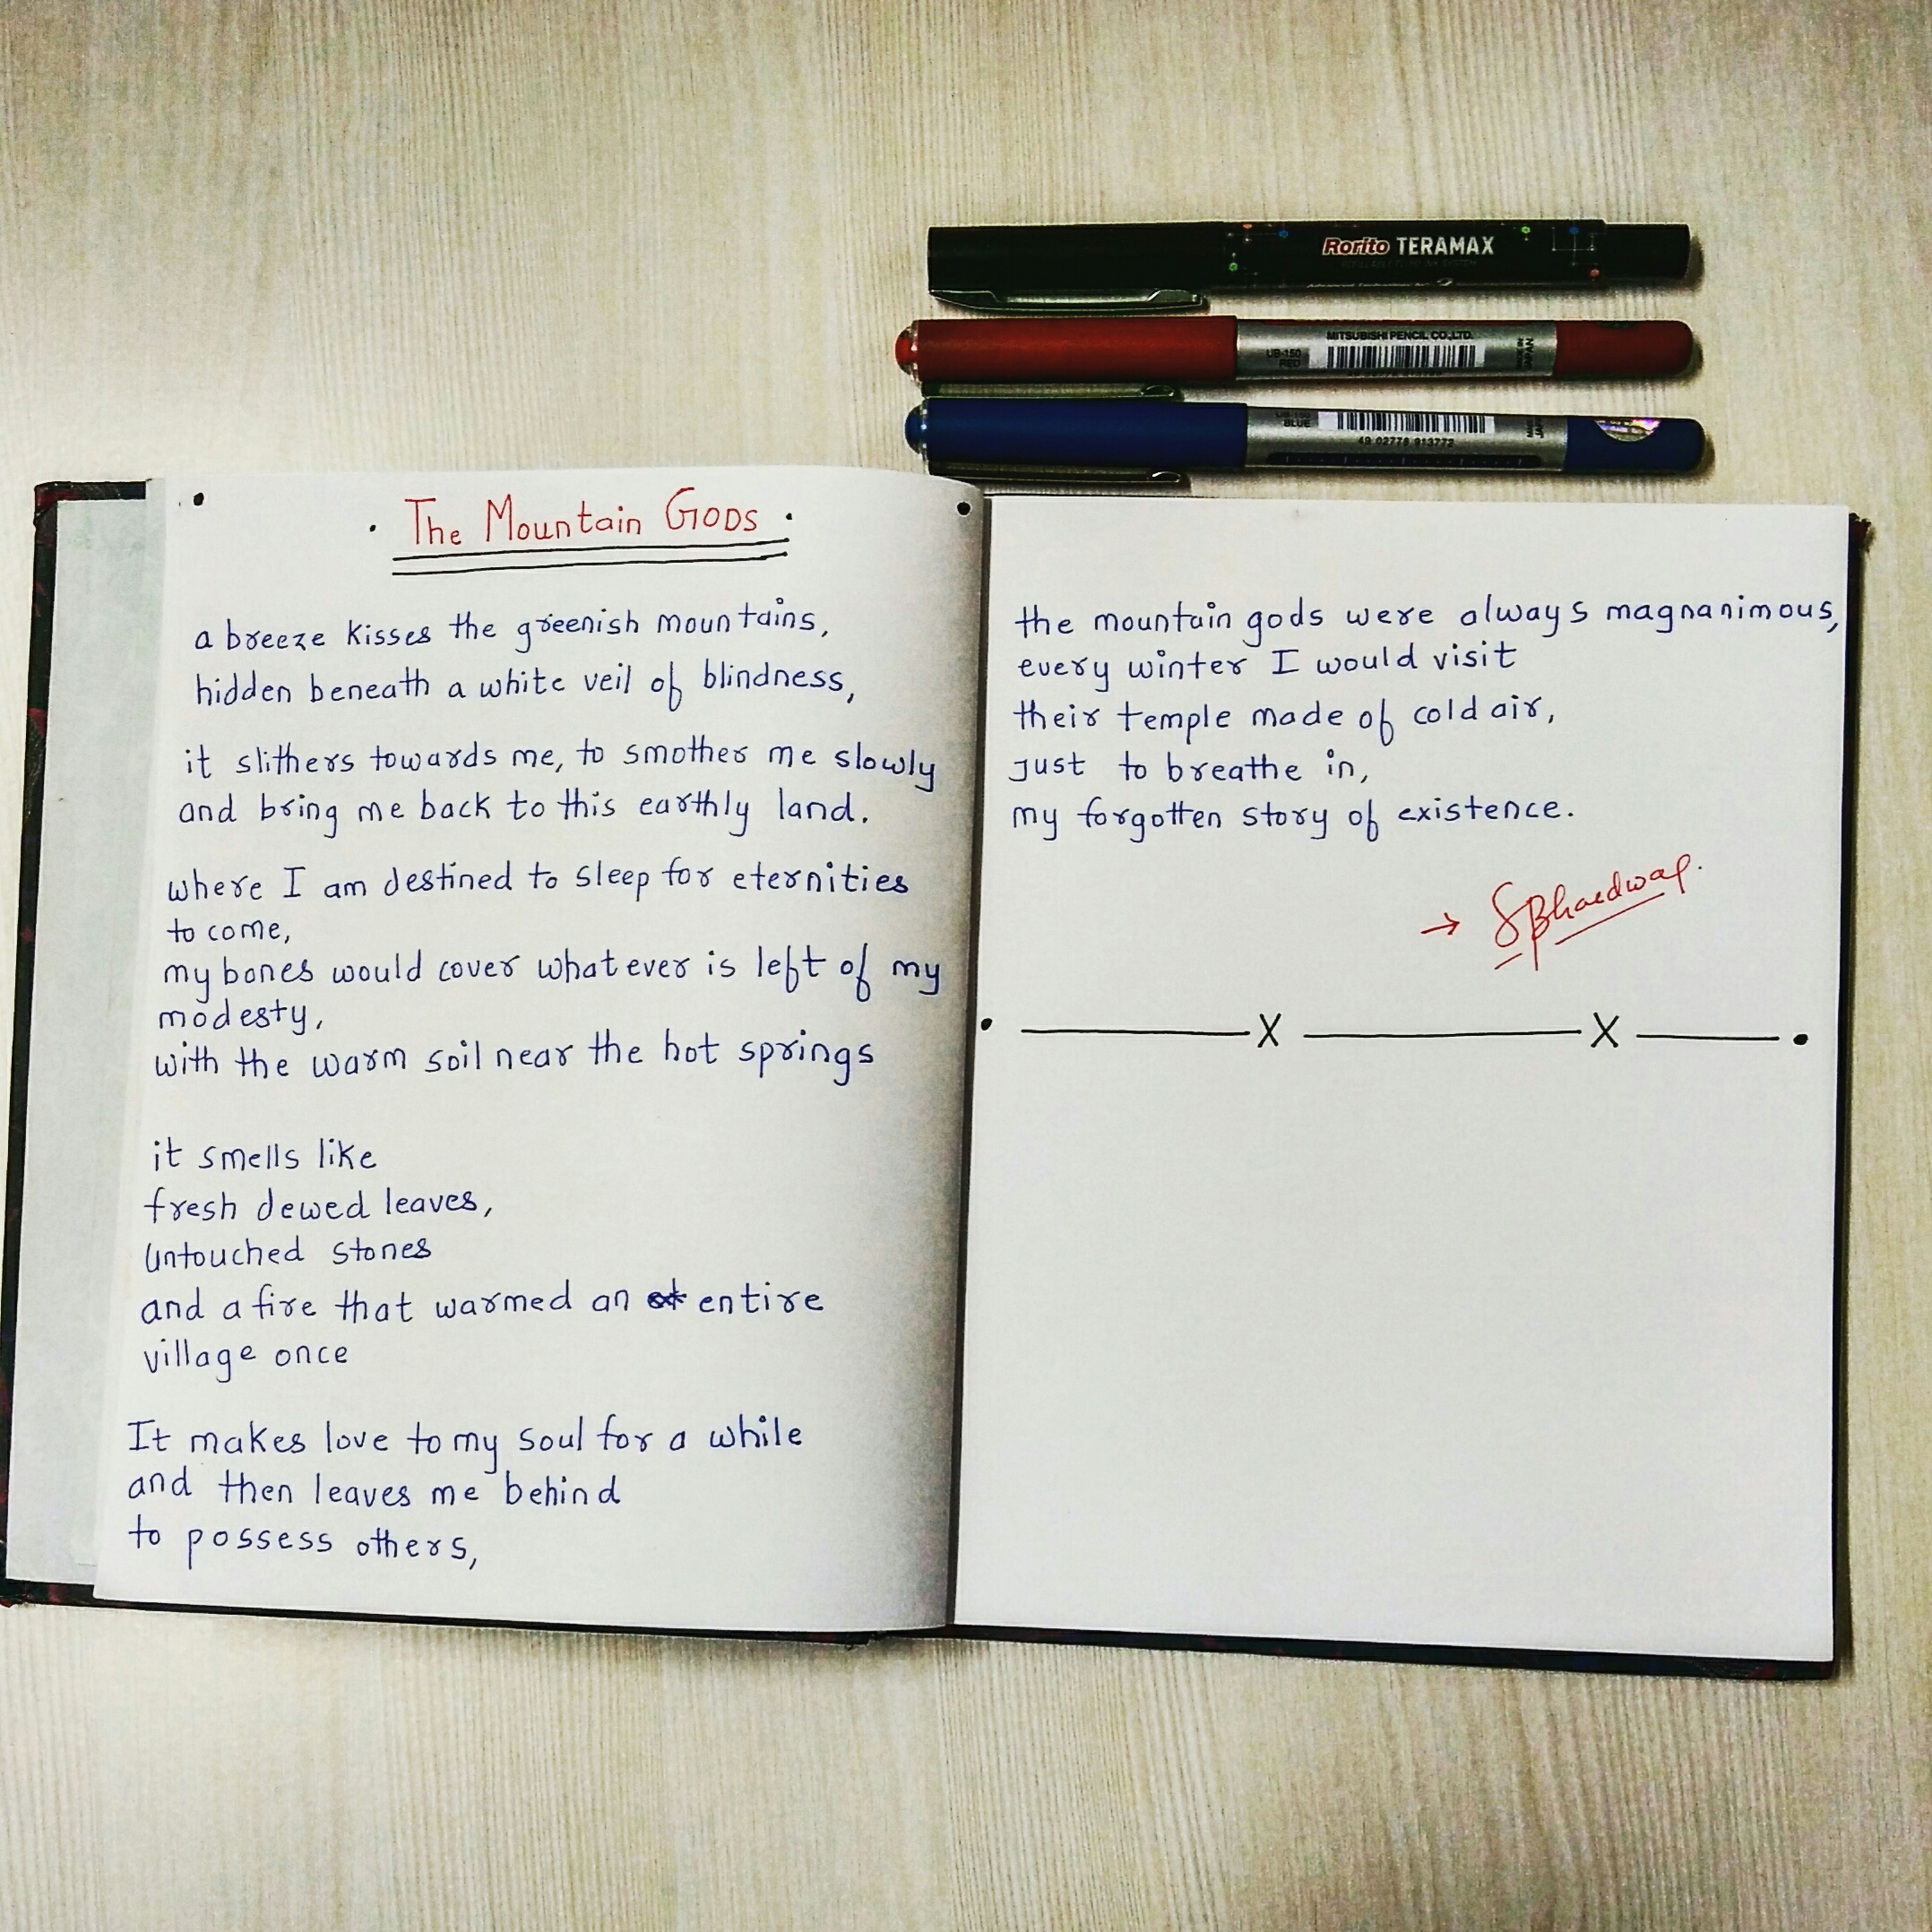 Rorito TERAMAX
MITSUBISHI PENCIL CO.,LTD.
UB-150
RED
MADE IN
JAPAN
BLUE
49 02778 913772
The Mountain GODS
a breeze kisses the greenish mountains,
hidden beneath a white veil of blindness,
it slithers towards me, to smother me slowly
and bring me back to this earthly land.
where I am destined to sleep for eternities
to come,
my bones would cover whatever is left of my
modesty,
with the warm soil near the hot springs
it smells like
fresh dewed leaves,
untouched stones
and a fire that warmed an entire
village once
It makes love to my soul for a while
and then leaves me behind
to possess others,
the mountain gods were always magnanimous,
every winter I would visit
their temple made of cold air,
just to breathe in,
my forgotten story of existence.
→ SBhardwaj.
X X